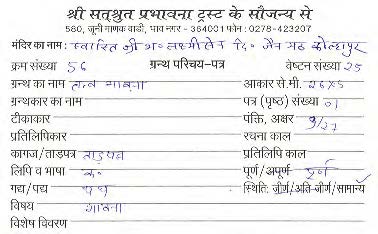 श्री सत्श्रुत प्रभावना ट्रस्ट के सौजन्य से
580, जूनी माणक वाडी, भाव नगर - 364001 फोन : 0278-423207
मंदिर का नाम : स्वास्ति श्री भ० लक्ष्मीसेन दि० जैन मठ कोल्हापुर
क्रम संख्या 56 ग्रन्थ परिचय-पत्र वेष्टन संख्या 25
ग्रन्थ का नाम तत्व भावना आकार से.मी. 26x5
ग्रन्थकार का नाम पत्र (पृष्ठ) संख्या 01
टीकाकार पंक्ति, अक्षर 9/27
प्रतिलिपिकार रचना काल
कागज/ताड़पत्र ताड़पत्र प्रतिलिपि काल
लिपि व भाषा क० पूर्ण/अपूर्ण पूर्ण
गद्य/पद्य पद्य स्थिति: जीर्ण/अति-जीर्ण/सामान्य
विषय भावना
विशेष विवरण